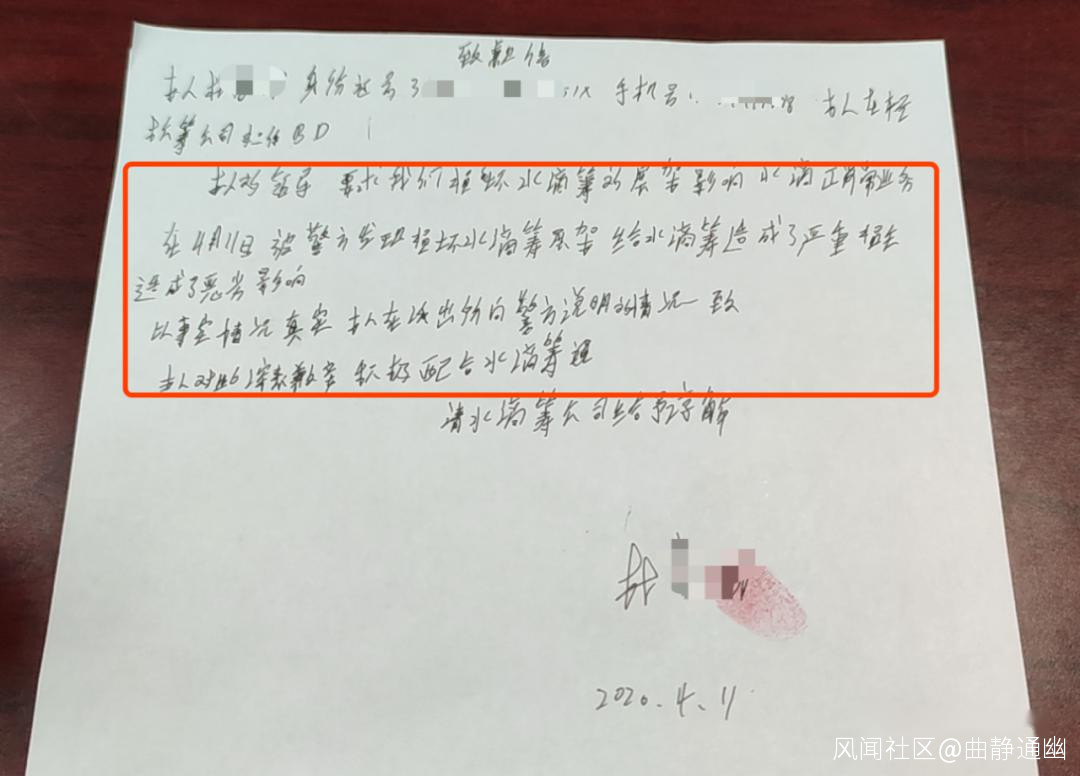 致歉信
本人杜 身份证号3 51X 手机号1 98 本人在轻
松筹公司担任BD
本人的领导 要求我们损坏水滴筹的展架影响水滴正常业务
在4月11日被警方发现损坏水滴筹展架 给水滴筹造成了严重损失
造成了恶劣影响
以事实情况真实 本人在派出所向警方说明的情况一致
本人对此深表歉意 积极配合水滴筹
请水滴筹公司给予谅解
杜
2020.4.11
风闻社区@曲静通幽